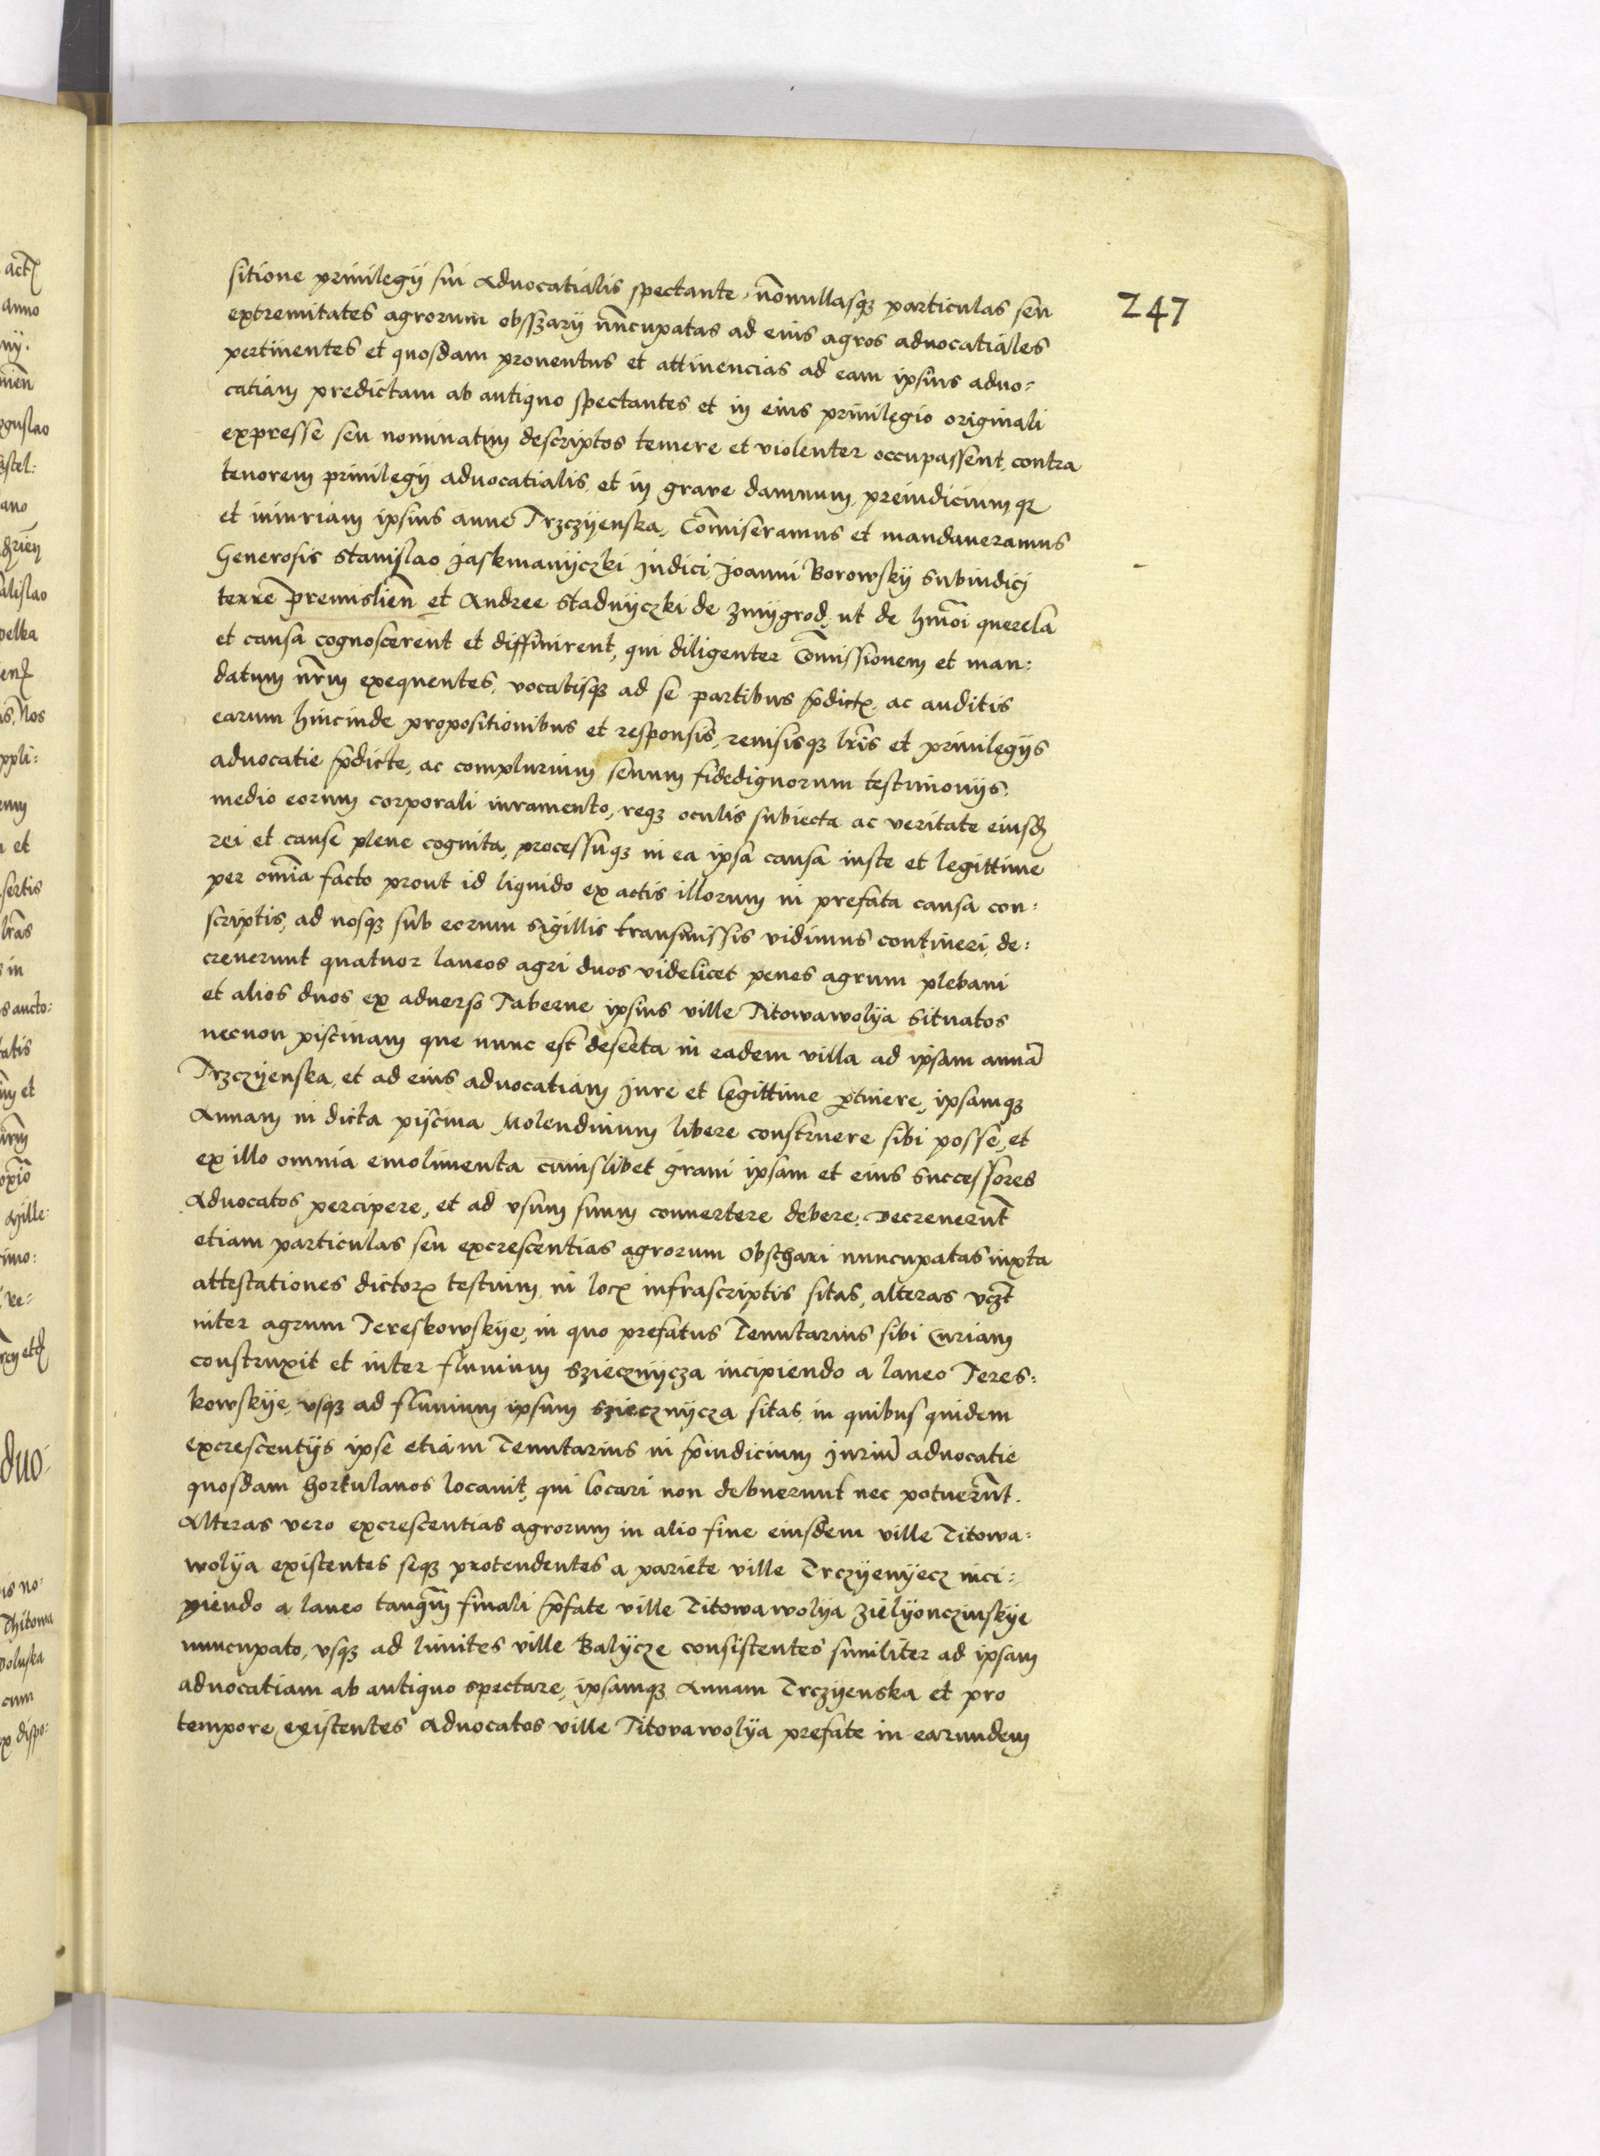 247
sitione priuilegij sui Aduocatialis spectante, nõnullasq3 particulas seu
extremitates agrorum obsszarij nũncupatas ad eius agros aduocatiales
pertinentes et quosdam prouentus et attinencias ad eam ipsius aduo=
catiam predictam ab antiquo spectantes et in eius priuilegio originali
expresse seu nominatim descriptos temere et violenter occupassent, contra
tenorem priuilegij aduocatialis, et in graue damnum, preiudiciumq3
et iniuriam ipsius anne Trzczyenska, Cõmiseramus et mandaueramus
Generosis stanislao Jaskmanijczki Judici, Joanni Borowskÿ Subiudici
terrẽ premisliẽn et Andree Stadnÿczki de Zmÿgrod, ut de hmõi querela
et causa cognoscerent et diffinirent, qui diligenter Cõmissionem et man=
datum nr̃m exequentes, vocatisq3 ad se partibus p̃dictꝭ, ac auditis
earum hincinde propositionibus et responsis, reuisisq3 lr̃is et priuilegijs
aduocatie p̃dicte, ac complurium senum fidedignorum testimonijs,
medio eorum corporali iuramento, req3 oculis subiecta ac veritate eiusd
rei et cause plene cognita, processuq3 in ea ipsa causa iuste et legittime
per om̃ia facto prout id liquido ex actis illorum in prefata causa con=
scriptis, ad nosq3 sub eorum sigillis transmissis vidimus contineri, de=
creuerunt quatuor laneos agri duos videlicet penes agrum plebani
et alios duos ex aduerso Taberne ipsius ville Titowawolÿa situatos
necnon piscinam que nunc est deserta in eadem villa ad ipsam annã
Trzczyenska, et ad eius aduocatiam Jure et legittime ꝑtinere, ipsamq3
Annam in dicta pijscina Molendinum libere construere sibi posse, et
ex illo omnia emolimenta cuiuslibet grani ipsam et eius successores
Aduocatos percipere, et ad vsum suum conuertere debere. Decreuerũt
etiam particulas seu excrescentias agrorum Obschari nuncupatas iuxta
attestationes dictorꝝ testium in locꝭ infrascriptis sitas, alteras vcꝫt
inter agrum Tereskowskÿe, in quo prefatus Tenutarius sibi Curiam
construxit et inter fluuium Szieczniÿcza incipiendo a laneo Teres=
kowskÿe, vsq3 ad fluuium ipsum Szieczniÿcza sitas, in quibus quidem
excrescentijs ipse etiam Tenutarius in p̃iudicium Juriũ aduocatie
quosdam hortulanos locauit, qui locari non debuerunt nec potuerũt.
Alteras vero excrescentias agrorum in alio fine eiusdem ville Titowa=
wolÿa existentes seq3 protendentes a pariete ville Trczÿenÿecz inci=
piendo a laneo tanq̃m finali p̃fate ville Titowawolÿa Zielÿonczinskÿe
nuncupato, vsq3 ad limites ville Balÿcze consistentes similiter ad ipsam
aduocatiam ab antiquo spectare, ipsamq3 Annam Trczyenska et pro
tempore existentes Aduocatos ville Titovawolÿa prefate in earundem